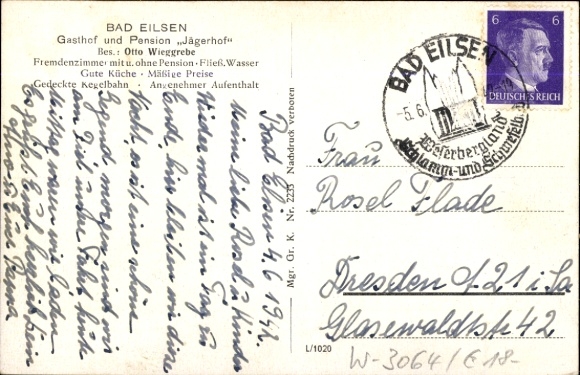 BAD EILSEN
Gasthof und Pension „Jägerhof"
Bes.: Otto Wieggrebe
Fremdenzimmer mit u. ohne Pension · Fließ. Wasser
Gute Küche · Mäßige Preise
Gedeckte Kegelbahn · Angenehmer Aufenthalt
Bad Eilsen 4.6.1942.
Meine liebe Rosel u. Kinder
Wieder mal ist ein Tag zu
End, hier bleiben wir diese
Nacht, es ist eine schöne
Gegend, morgen sind wir
am Ziel unsre Fahrt heute
Mittag waren wir
Mgr. Gr. K. Nr. 2235 Nachdruck verboten
L/1020
6 6
DEUTSCHES REICH
BAD EILSEN
-5.6.
Weserbergland
Schlamm- und Schwefelb
Frau
Rosel Flade
Dresden A 21 i. Sa
Glasewaldtstr 42
W-3064/E 18-